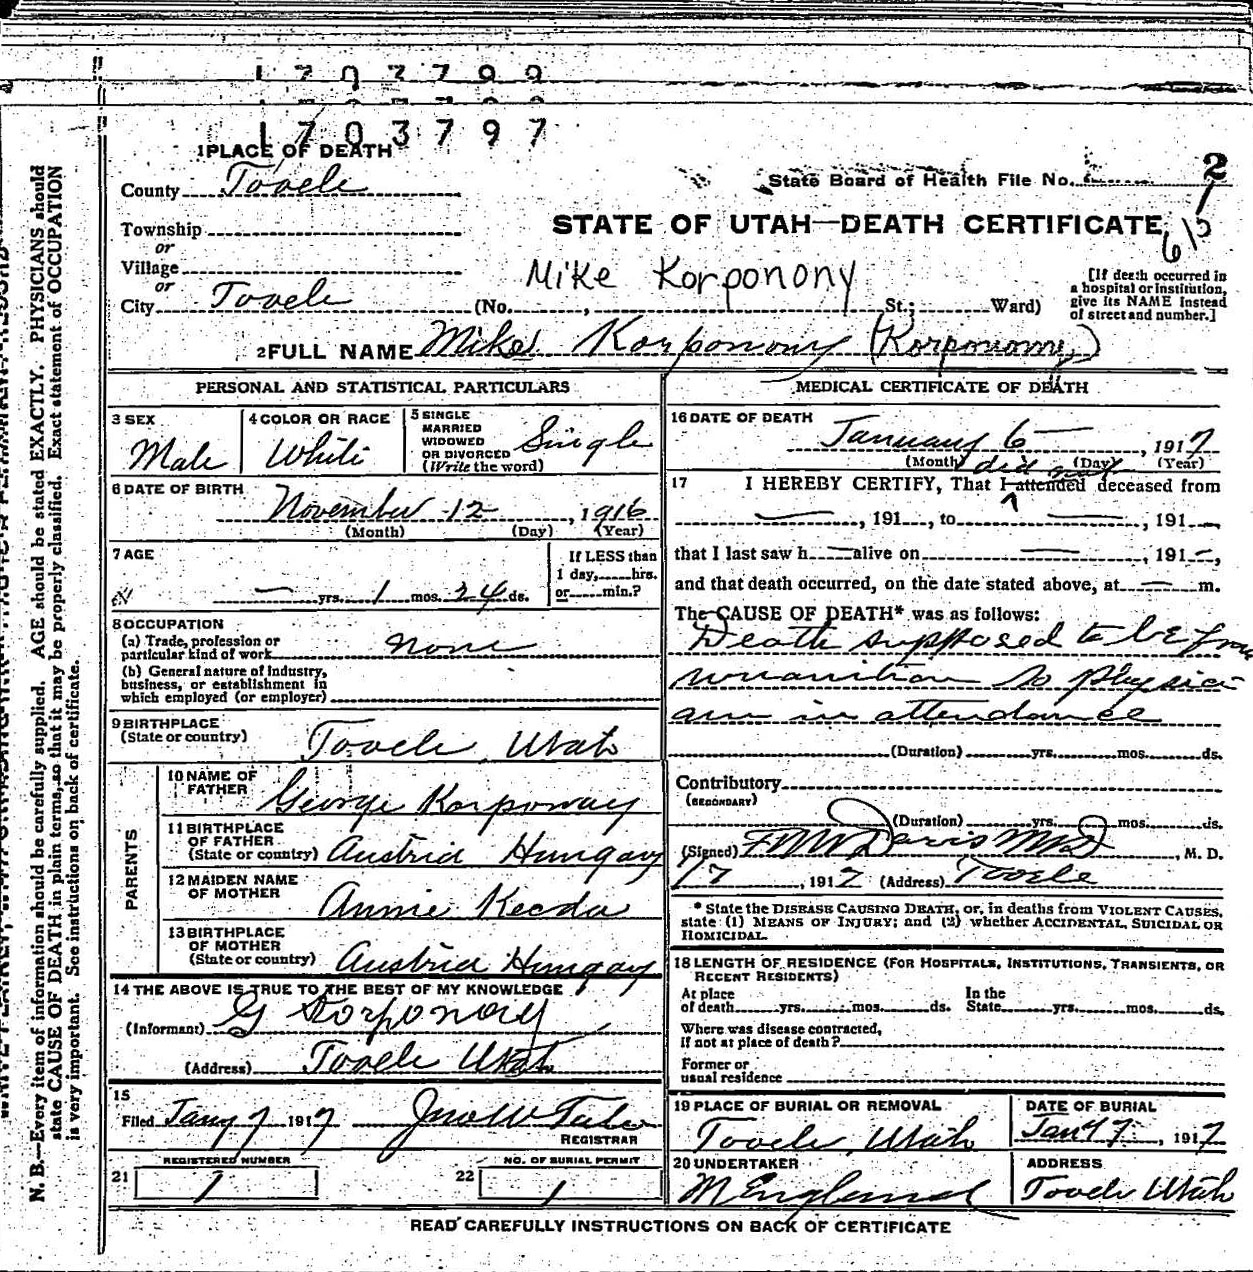 1703799
1703797
1 PLACE OF DEATH
County Tooele
State Board of Health File No. 2
Township
or
Village
or
City Tooele (No. , St.; Ward)
STATE OF UTAH—DEATH CERTIFICATE
Mike Korponony
[If death occurred in
a hospital or institution,
give its NAME instead
of street and number.]
2 FULL NAME Mike Korponony (Korponomy)
PERSONAL AND STATISTICAL PARTICULARS
3 SEX
Male
4 COLOR OR RACE
White
5 SINGLE
MARRIED
WIDOWED
OR DIVORCED
(Write the word)
Single
6 DATE OF BIRTH
November 12, 1916
(Month) (Day) (Year)
7 AGE
— yrs. 1 mos. 24 ds.
If LESS than
1 day, hrs.
or min.?
8 OCCUPATION
(a) Trade, profession or
particular kind of work none
(b) General nature of industry,
business, or establishment in
which employed (or employer)
9 BIRTHPLACE
(State or country) Tooele, Utah
PARENTS
10 NAME OF
FATHER George Korponay
11 BIRTHPLACE
OF FATHER
(State or country) Austria Hungary
12 MAIDEN NAME
OF MOTHER Annie Kecda
13 BIRTHPLACE
OF MOTHER
(State or country) Austria Hungary
14 THE ABOVE IS TRUE TO THE BEST OF MY KNOWLEDGE
(Informant) G Korponay
(Address) Tooele Utah
15
Filed Jany 7 1917
REGISTRAR
REGISTERED NUMBER
21 1
NO. OF BURIAL PERMIT
22 1
MEDICAL CERTIFICATE OF DEATH
16 DATE OF DEATH
January 6 — , 1917
(Month) (Day) (Year)
did not
17 I HEREBY CERTIFY, That I attended deceased from
— , 191 , to — , 191 —,
that I last saw h — alive on — , 191 –,
and that death occurred, on the date stated above, at — m.
The CAUSE OF DEATH* was as follows:
Death supposed to be from
innanition no physici
an in attendance
(Duration) yrs. mos. ds.
Contributory
(SECONDARY)
(Duration) yrs. mos. ds.
(Signed) Davis M D , M. D.
1/7 , 1917 (Address) Tooele
* State the DISEASE CAUSING DEATH, or, in deaths from VIOLENT CAUSES,
state (1) MEANS OF INJURY; and (2) whether ACCIDENTAL, SUICIDAL OR
HOMICIDAL.
18 LENGTH OF RESIDENCE (FOR HOSPITALS, INSTITUTIONS, TRANSIENTS, OR
RECENT RESIDENTS)
At place
of death yrs. mos. ds.
In the
State yrs. mos. ds.
Where was disease contracted,
if not at place of death?
Former or
usual residence
19 PLACE OF BURIAL OR REMOVAL
Tooele, Utah
DATE OF BURIAL
Jany 7 , 1917
20 UNDERTAKER
ADDRESS
Tooele Utah
READ CAREFULLY INSTRUCTIONS ON BACK OF CERTIFICATE
N. B.—Every item of information should be carefully supplied. AGE should be stated EXACTLY. PHYSICIANS should
state CAUSE OF DEATH in plain terms, so that it may be properly classified. Exact statement of OCCUPATION
is very important. See instructions on back of certificate.